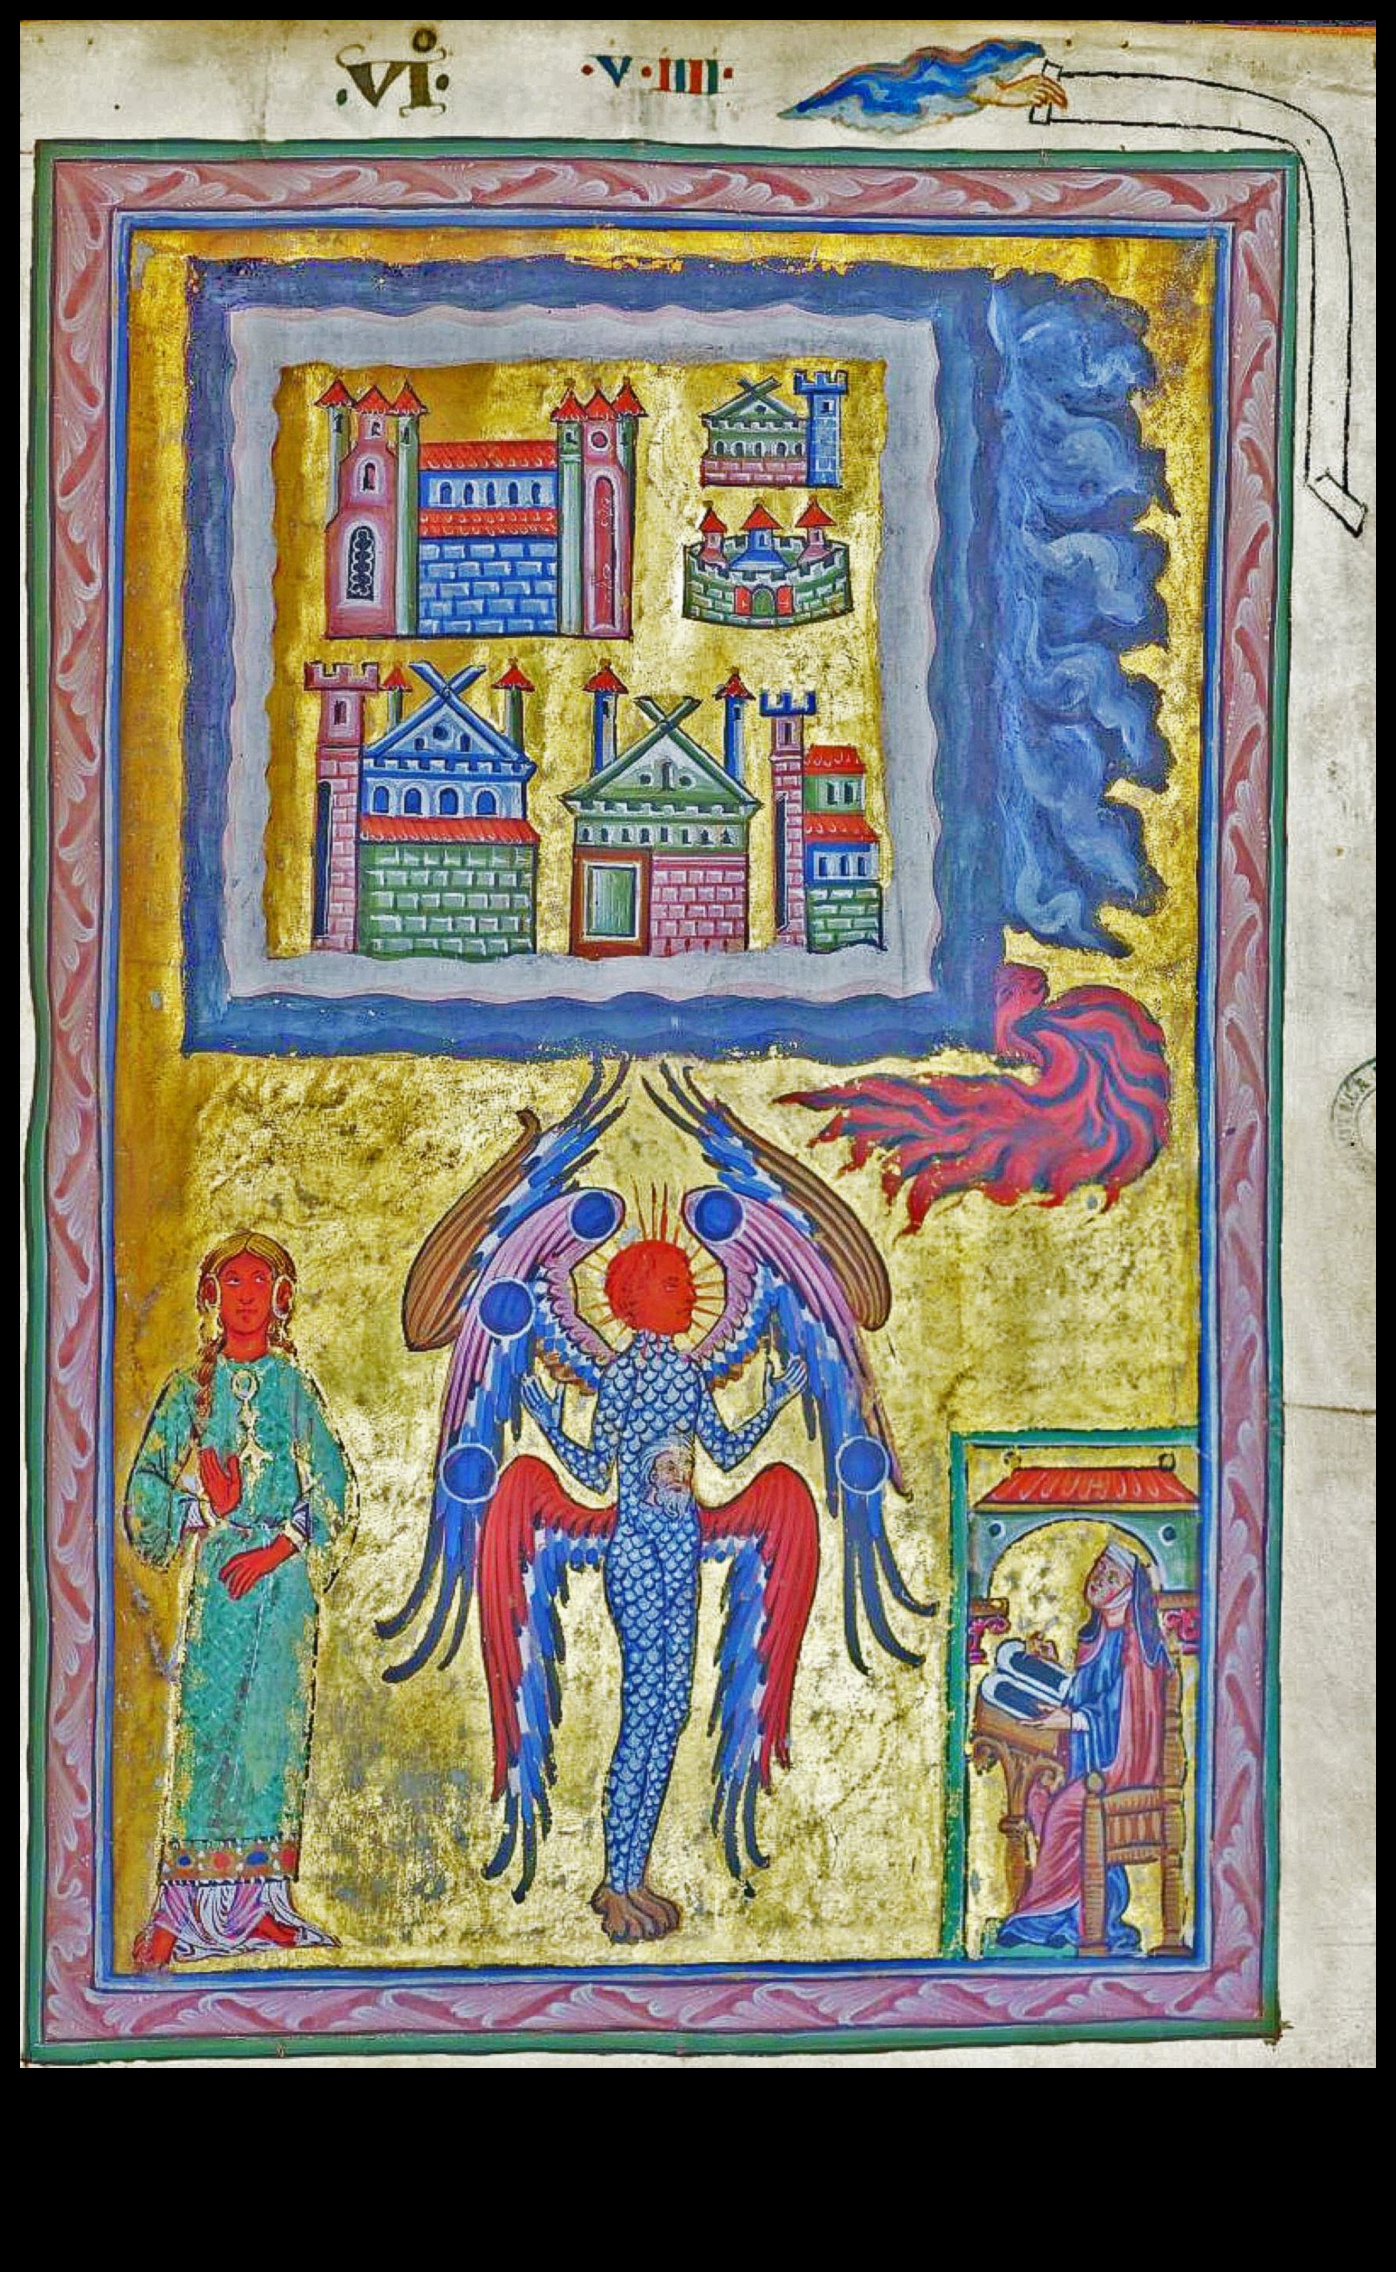 .VI°.
·V·IIII·